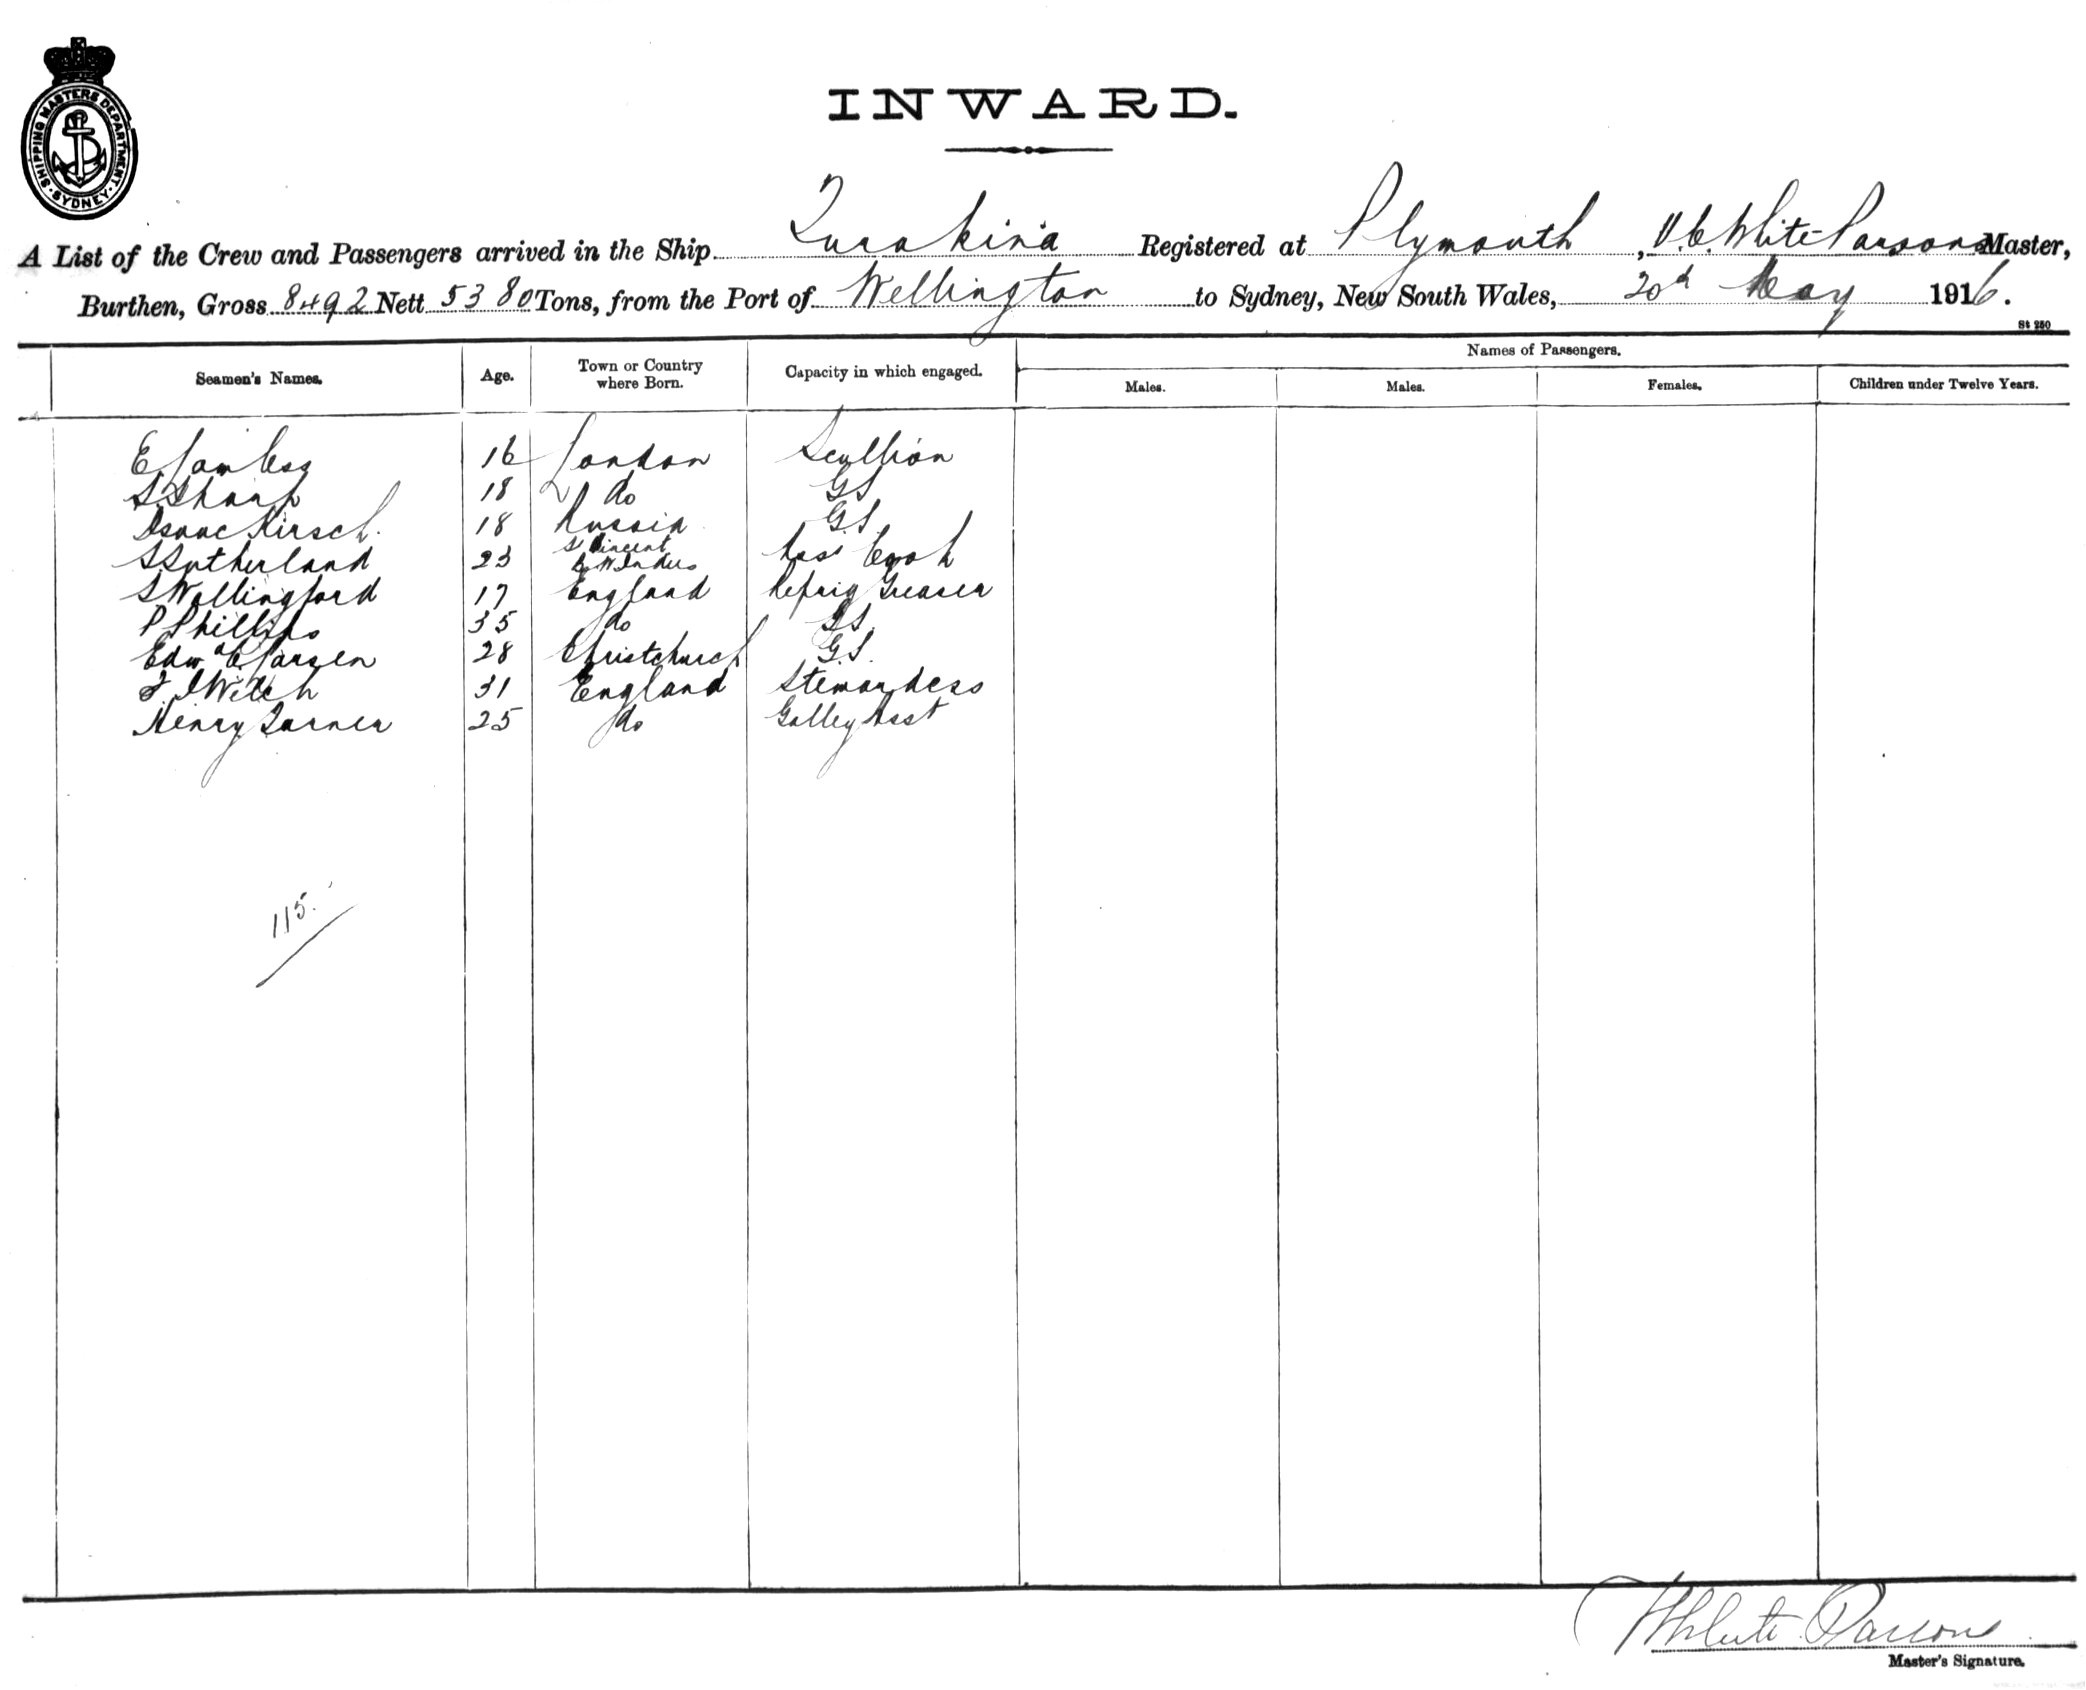 SHIPPING MASTERS DEPARTMENT. SYDNEY
INWARD.
A List of the Crew and Passengers arrived in the Ship Turakina Registered at Plymouth, White Parsons Master,
Burthen, Gross 8492 Nett 5380 Tons, from the Port of Wellington to Sydney, New South Wales, 20d May 1916.
St 250
Seamen's Names. Age. Town or Country where Born. Capacity in which engaged. Names of Passengers.
Males. Males. Females. Children under Twelve Years.
E 16 London Scullion
S Sharp 18 do GS
Isaac Kirsch. 18 Russia GS
S Sutherland 23 St Vincent Ass Cook
S Wallingford 17 England Refrig Greaser
P Phillips 35 do GS.
Edwd C Larsen 28 Christchurch G.S.
Welch 31 England Stewardess
Henry Turner 25 do Galley Asst
115.
White Parsons
Master's Signature.